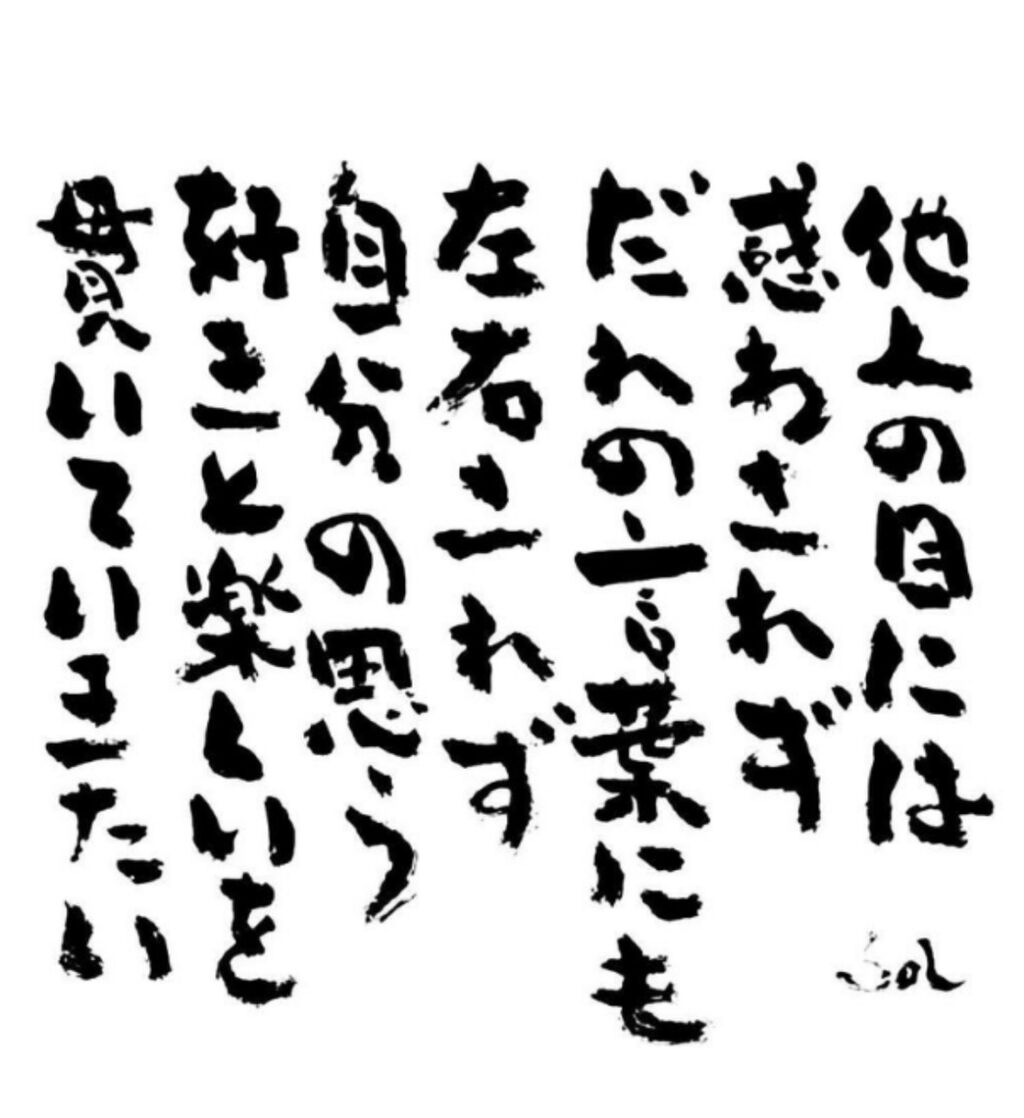 他人の目には
惑わされぎ
だれの言葉にも
左右されず
自分の思う
好きと楽しいを
貫いていきたい
Sol